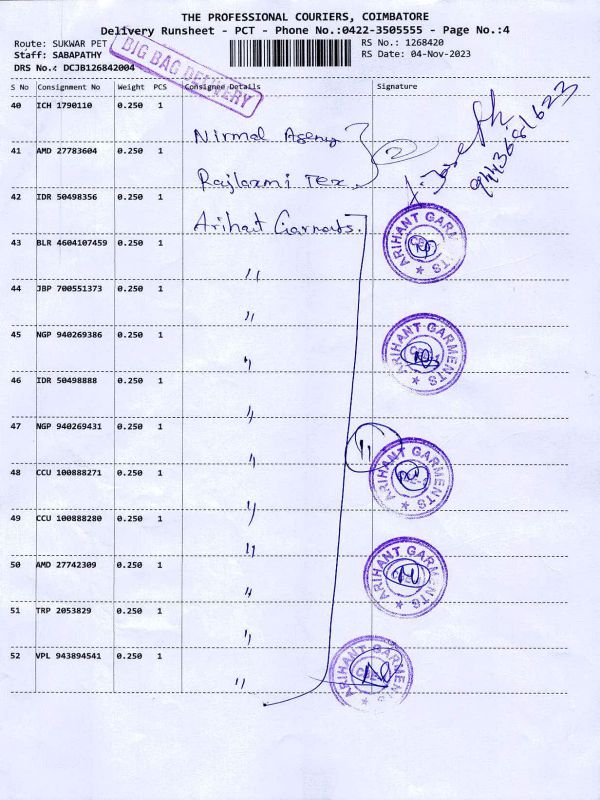 THE PROFESSIONAL COURIERS, COIMBATORE
Delivery Runsheet - PCT - Phone No.:0422-3505555 - Page No.:4
Route: SUKWAR PET
RS No.: 1268420
Staff: SABAPATHY
RS Date: 04-Nov-2023
DRS No.: DCJB126842004
BIG BAG DELIVERY
S No Consignment No Weight PCS Consignee Details Signature
40 ICH 1790110 0.250 1 Nirmal Agency
41 AMD 27783604 0.250 1 Rajlaxmi Tex.
2
42 IDR 50498356 0.250 1 Arihant Garments.
43 BLR 4604107459 0.250 1 "
44 JBP 700551373 0.250 1 "
45 NGP 940269386 0.250 1 "
46 IDR 50498888 0.250 1 "
47 NGP 940269431 0.250 1 "
11
48 CCU 100888271 0.250 1 "
49 CCU 100888280 0.250 1 "
50 AMD 27742309 0.250 1 "
51 TRP 2053829 0.250 1 "
52 VPL 943894541 0.250 1 "
ARIHANT GARMENTS
ARIHANT GARMENTS
ARIHANT GARMENTS
ARIHANT GARMENTS
ARIHANT GARMENTS